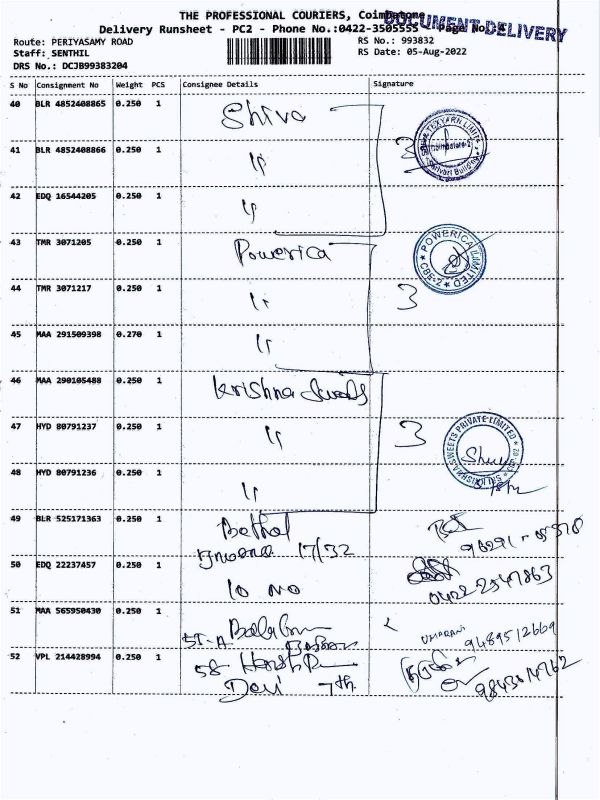 THE PROFESSIONAL COURIERS, Coimbatore
DOCUMENT DELIVERY
Delivery Runsheet - PC2 - Phone No.:0422-3505555 Page No.
Route: PERIYASAMY ROAD
RS No.: 993832
Staff: SENTHIL
RS Date: 05-Aug-2022
DRS No.: DCJB99383204
S No Consignment No Weight PCS Consignee Details Signature
40 BLR 4852408865 0.250 1 Shiva
41 BLR 4852408866 0.250 1 " 3
42 EDQ 16544205 0.250 1 "
43 TMR 3071205 0.250 1 Powerica
POWERICA LIMITED CBE-2
44 TMR 3071217 0.250 1 " 3
45 MAA 291509398 0.270 1 "
46 MAA 290105488 0.250 1 Krishna Sweets
47 HYD 80791237 0.250 1 " 3
SRI KRISHNA SWEETS PRIVATE LIMITED
48 HYD 80791236 0.250 1 "
49 BLR 525171363 0.250 1
17/32
50 EDQ 22237457 0.250 1 10 NO 0422-2547863
51 MAA 565950430 0.250 1
51-A UMARANI 9489512669
52 VPL 214428994 0.250 1 58
Devi 7th